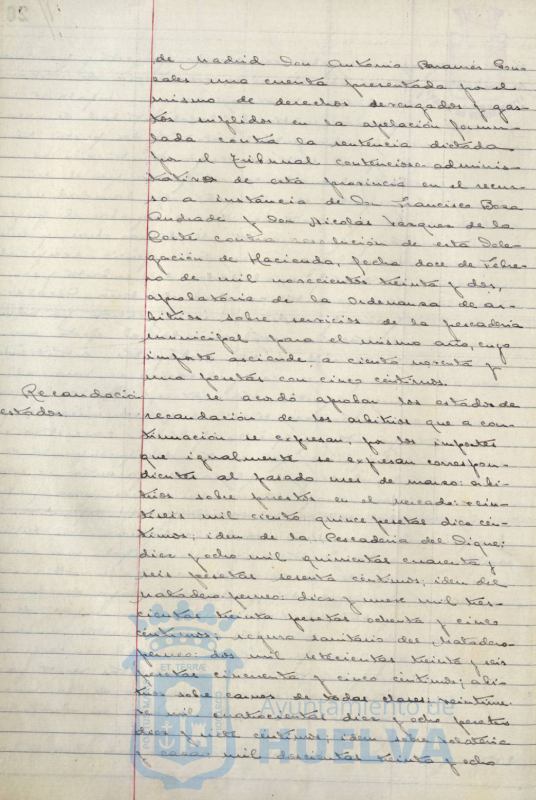 de Madrid Don Antonio Paramés Gon-
zales una cuenta presentada por el
mismo de derechos devengados y gas-
tos suplidos en la apelación formu-
lada contra la sentencia dictada
por el Tribunal contencioso adminis-
trativo de esta provincia en el recur-
so a instancia de Don Francisco Boza
Andrade y Don Nicolás Vazquez de la
Corte contra resolución de esta Dele-
gación de Hacienda, fecha doce de Febre-
ro de mil novecientos treinta y dos,
aprobatoria de la Ordenanza de ar-
bitrios sobre servicios de la pescadería
municipal para el mismo año, cuyo
importe asciende a ciento noventa y
una pesetas con cinco céntimos.
Recaudación
estados
Se acordó aprobar los estados de
recaudación de los arbitrios que a con-
tinuación se expresan, por los importes
que igualmente se expresan correspon-
dientes al pasado mes de marzo: arbi-
trios sobre puestos en el mercado: vein-
tiseis mil ciento quince pesetas diez cén-
timos; idem de la Pescadería del Dique:
diez y ocho mil quinientas cuarenta y
seis pesetas sesenta céntimos; idem del
matadero perneo: diez y nueve mil tres-
cientas treinta pesetas ochenta y cinco
céntimos; seguro sanitario del Matadero-
perneo: dos mil setecientas treinta y seis
pesetas cincuenta y cinco céntimos; arbi-
trios sobre carnes de todas clases: veintinue-
ve mil cuatrocientas diez y ocho pesetas
diez y siete céntimos; idem sobre
mil doscientas treinta y ocho
Ayuntamiento de
HUELVA